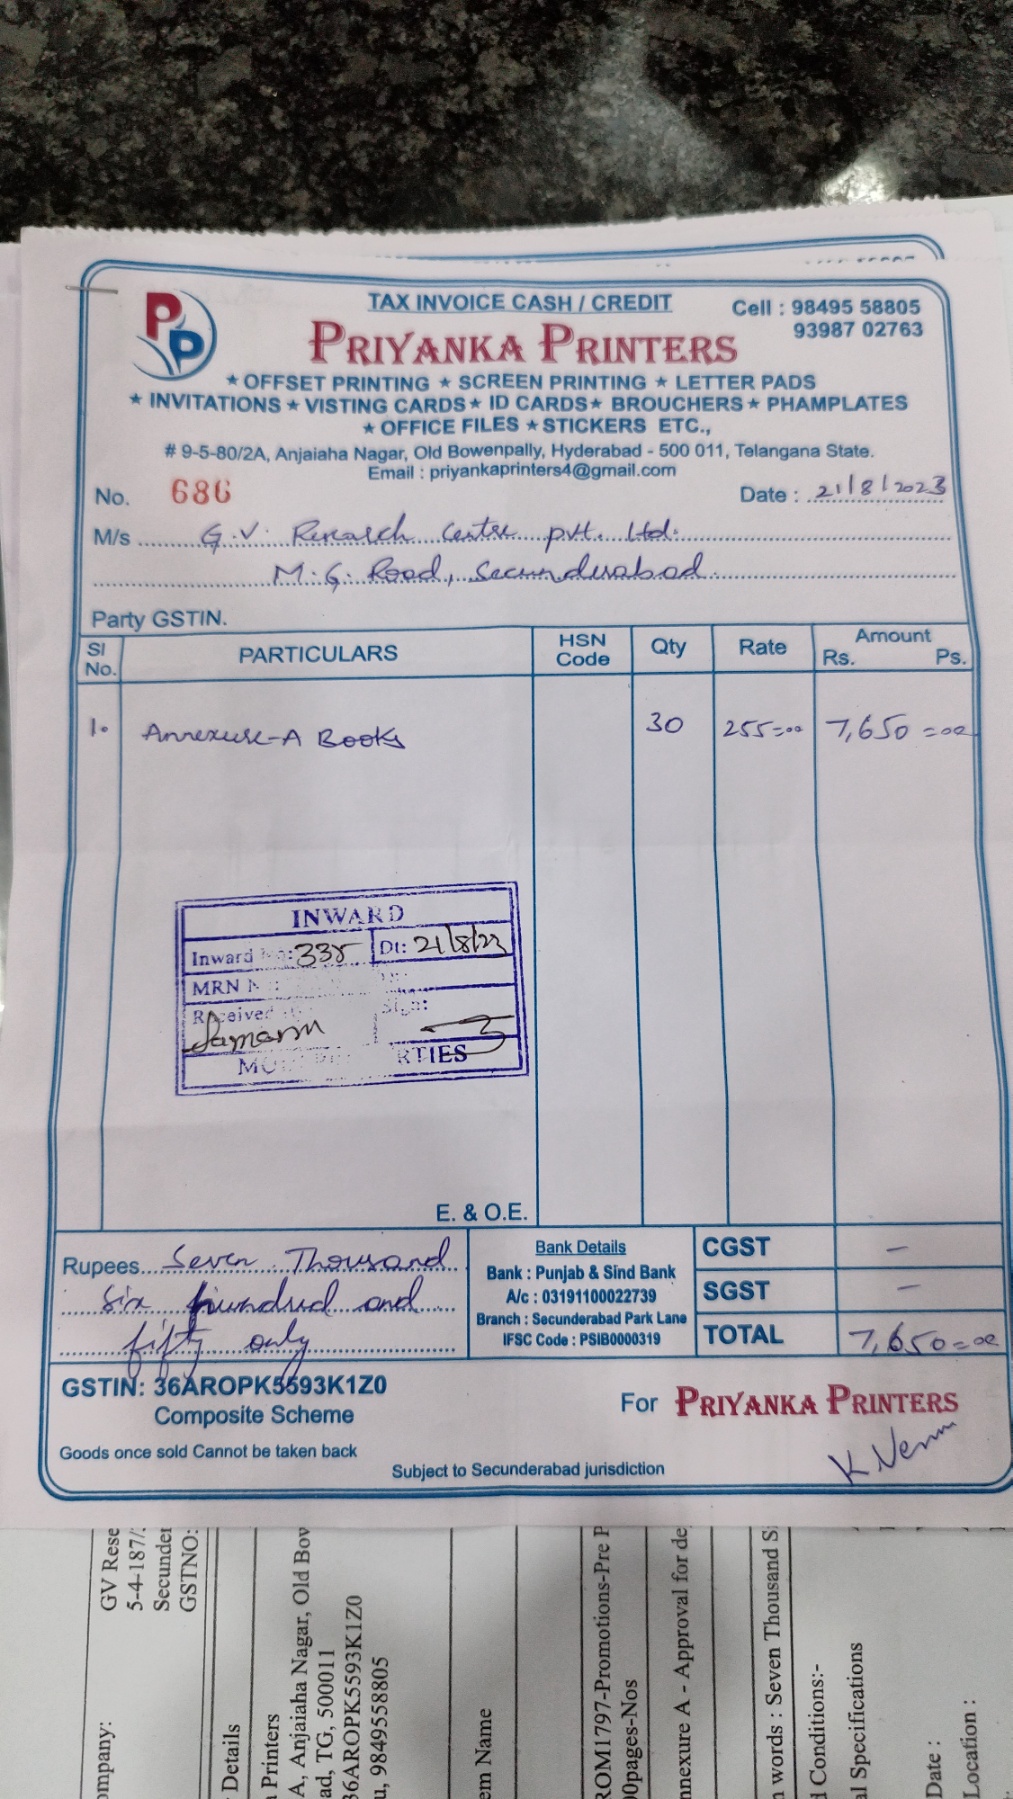 TAX INVOICE CASH / CREDIT
Cell : 98495 58805
93987 02763
PP
PRIYANKA PRINTERS
★ OFFSET PRINTING ★ SCREEN PRINTING ★ LETTER PADS
★ INVITATIONS ★ VISTING CARDS ★ ID CARDS ★ BROUCHERS ★ PHAMPLATES
★ OFFICE FILES ★ STICKERS ETC.,
# 9-5-80/2A, Anjaiaha Nagar, Old Bowenpally, Hyderabad - 500 011, Telangana State.
Email : priyankaprinters4@gmail.com
No. 686 Date : 21/8/2023
M/s G.V. Research Centre pvt. Ltd.
M.G. Road, Secunderabad.
Party GSTIN.
Sl No. PARTICULARS HSN Code Qty Rate Amount Rs. Ps.
1. Annexure-A Books 30 255=00 7,650=00
INWARD
Inward No: 335 Dt: 21/8/23
MRN N
Received Sign:
RTIES
E. & O.E.
Rupees Seven Thousand
Six hundred and
fifty only
Bank Details
Bank : Punjab & Sind Bank
A/c : 03191100022739
Branch : Secunderabad Park Lane
IFSC Code : PSIB0000319
CGST —
SGST —
TOTAL 7,650=00
GSTIN: 36AROPK5593K1Z0
Composite Scheme
For PRIYANKA PRINTERS
Goods once sold Cannot be taken back
Subject to Secunderabad jurisdiction
ompany:
GV Rese
5-4-187/
Secunder
GSTNO:
Details
Printers
A, Anjaiaha Nagar, Old Bow
ad, TG, 500011
36AROPK5593K1Z0
u, 9849558805
em Name
ROM1797-Promotions-Pre P
00pages-Nos
nnexure A - Approval for de
n words : Seven Thousand S
d Conditions:-
al Specifications
Date :
Location :